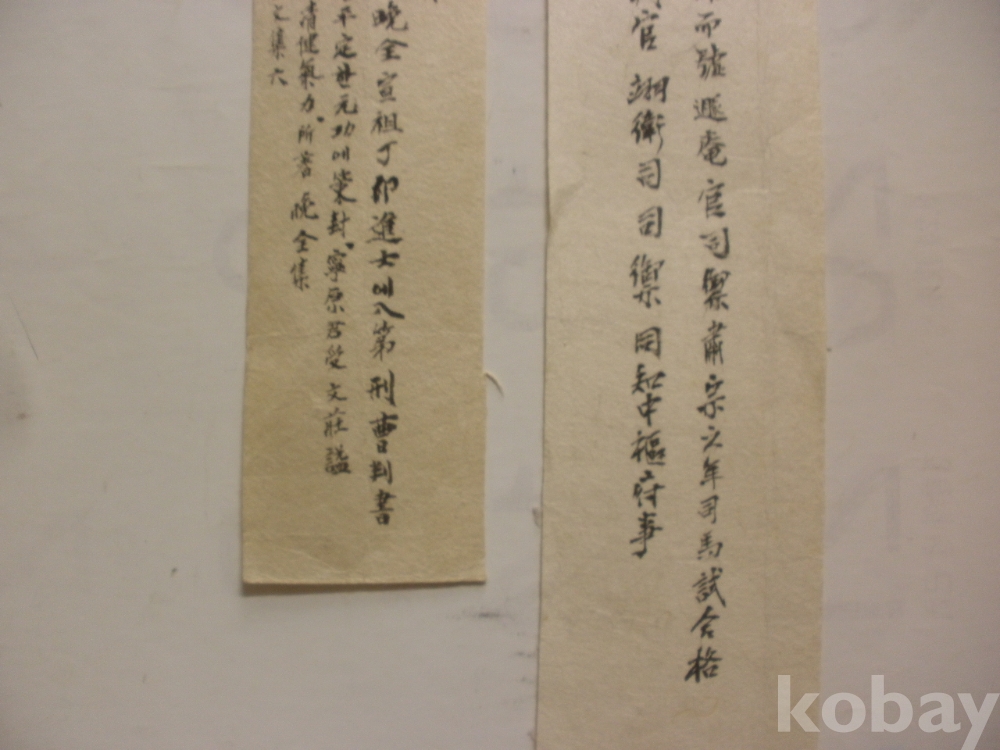 而號遯庵官司禦肅宗六年司馬試合格
官翊衛司司禦同知中樞府事
晩全宣祖丁卯進士以入第刑曹判書
平定廿元功以策封寧原君受文莊諡
清健氣力所書晩全集
集六
kobay